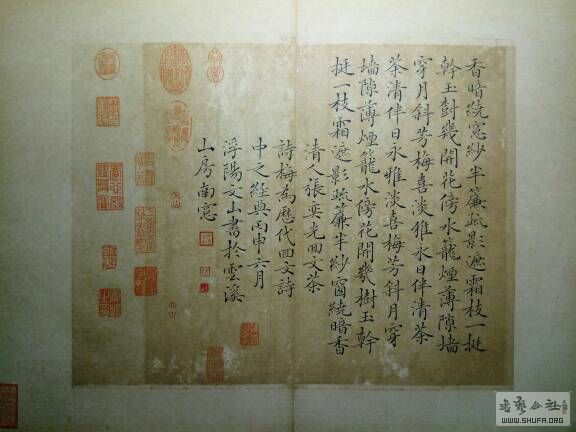 香暗繞窓紗半簾疏影遮霜枝一挺
幹玉樹幾開花傍水籠煙薄隙墻
穿月斜芳梅喜淡雅永日伴清茶
茶清伴日永雅淡喜梅芳斜月穿
墻隙薄煙籠水傍花開幾樹玉幹
挺一枝霜遮影疏簾半紗窗繞暗香
清人張奕光回文茶
詩梅為歷代回文詩
中之經典丙申六月
浮陽文山書於雲溪
山房南窓
書藝公社
WWW.SHUFA.ORG